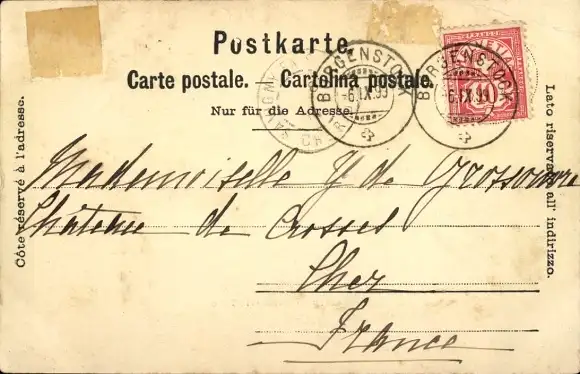 Postkarte.
Carte postale. — Cartolina postale.
Nur für die Adresse.
Côté réservé à l'adresse.
Lato riservato all' indirizzo.
BÜRGENSTOCK
-6.IX.99
BÜRGENSTOCK
-6.IX.99
HELVETIA
Mademoiselle Y de Grossouvre
Château de Crosses
Cher
France